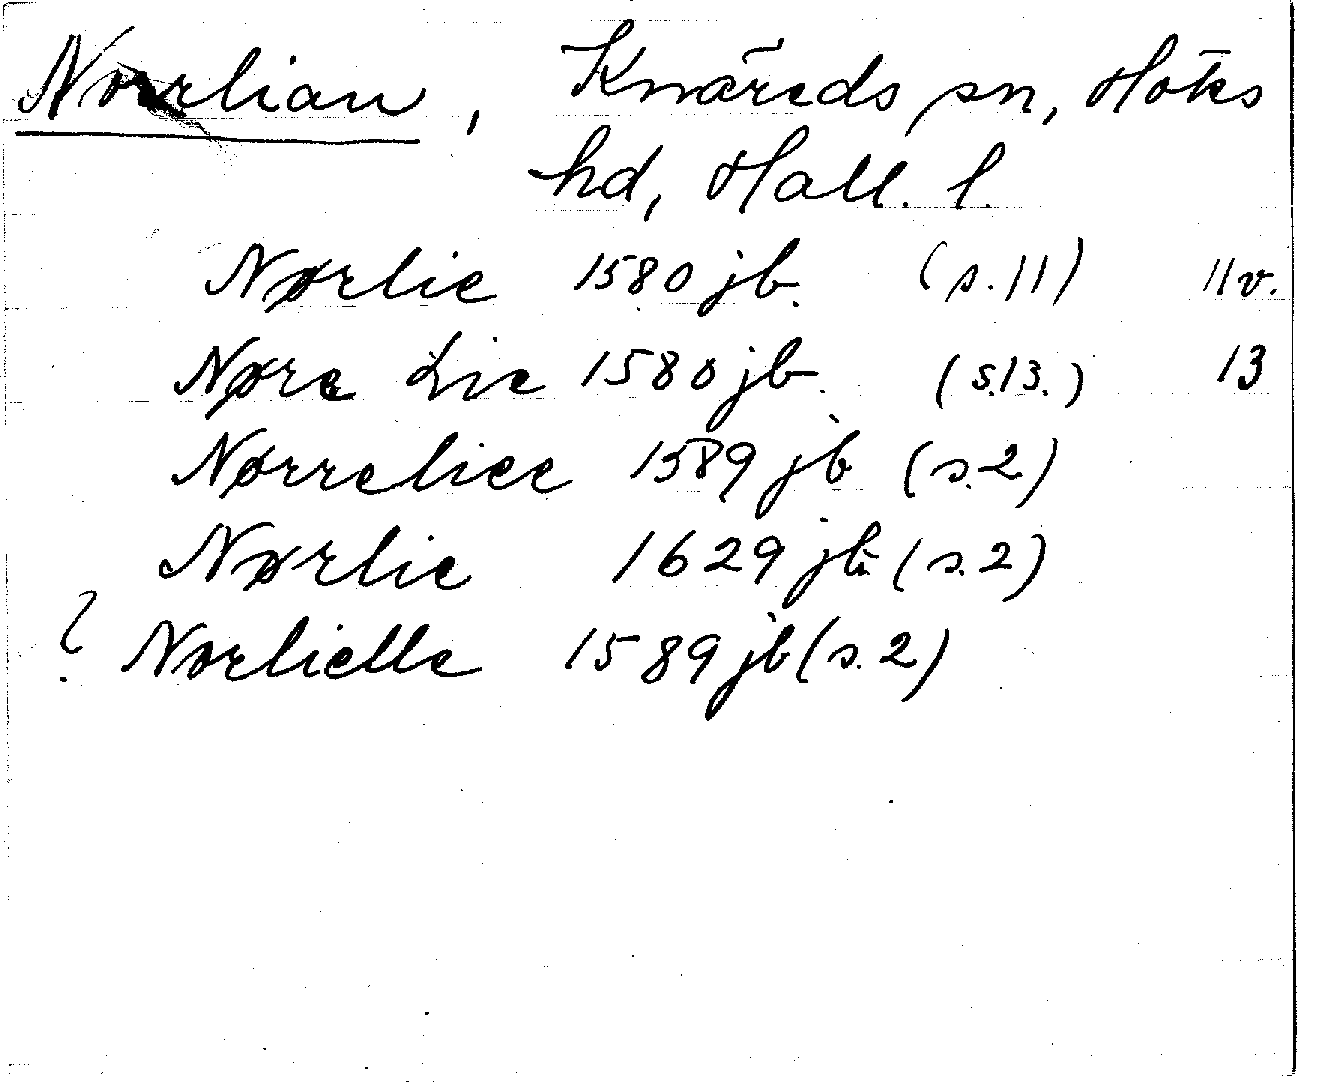 Norrlian, Knäreds sn, Höks
hd, Hall. l.
Nørlie 1580 jb. (s. 11) 11v.
Nøre Lie 1580 jb. (s. 13.) 13
Nørreliee 1589 jb (s. 2)
Nørlie 1629 jb (s. 2)
? Norlielle 1589 jb (s. 2)